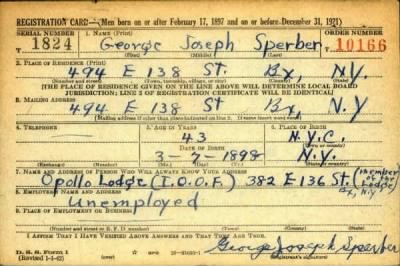 REGISTRATION CARD—(Men born on or after February 17, 1897 and on or before December 31, 1921)
SERIAL NUMBER 1. NAME (Print) ORDER NUMBER
1824 George Joseph Sperber 10166
(First) (Middle) (Last)
2. PLACE OF RESIDENCE (Print)
494 E 138 St. Bx, N.Y.
(Number and street) (Town, township, village, or city) (County) (State)
[THE PLACE OF RESIDENCE GIVEN ON THE LINE ABOVE WILL DETERMINE LOCAL BOARD
JURISDICTION; LINE 2 OF REGISTRATION CERTIFICATE WILL BE IDENTICAL]
3. MAILING ADDRESS
494 E 138 St Bx, N.Y
[Mailing address if other than place indicated on line 2. If same insert word same]
4. TELEPHONE 5. AGE IN YEARS 6. PLACE OF BIRTH
43 N.Y.C.
DATE OF BIRTH (Town or county)
3-7-1898 N.Y.
(Exchange) (Number) (Mo.) (Day) (Yr.) (State or country)
7. NAME AND ADDRESS OF PERSON WHO WILL ALWAYS KNOW YOUR ADDRESS
Opollo Lodge (I.O.O.F.) 382 E 136 St. (Member of Lodge)
Bx, N.Y
8. EMPLOYER'S NAME AND ADDRESS
Unemployed
9. PLACE OF EMPLOYMENT OR BUSINESS
(Number and street or R. F. D. number) (Town) (County) (State)
I AFFIRM THAT I HAVE VERIFIED ABOVE ANSWERS AND THAT THEY ARE TRUE.
D. S. S. Form 1
(Revised 1-1-42) (over)
George Joseph Sperber
(Registrant's signature)